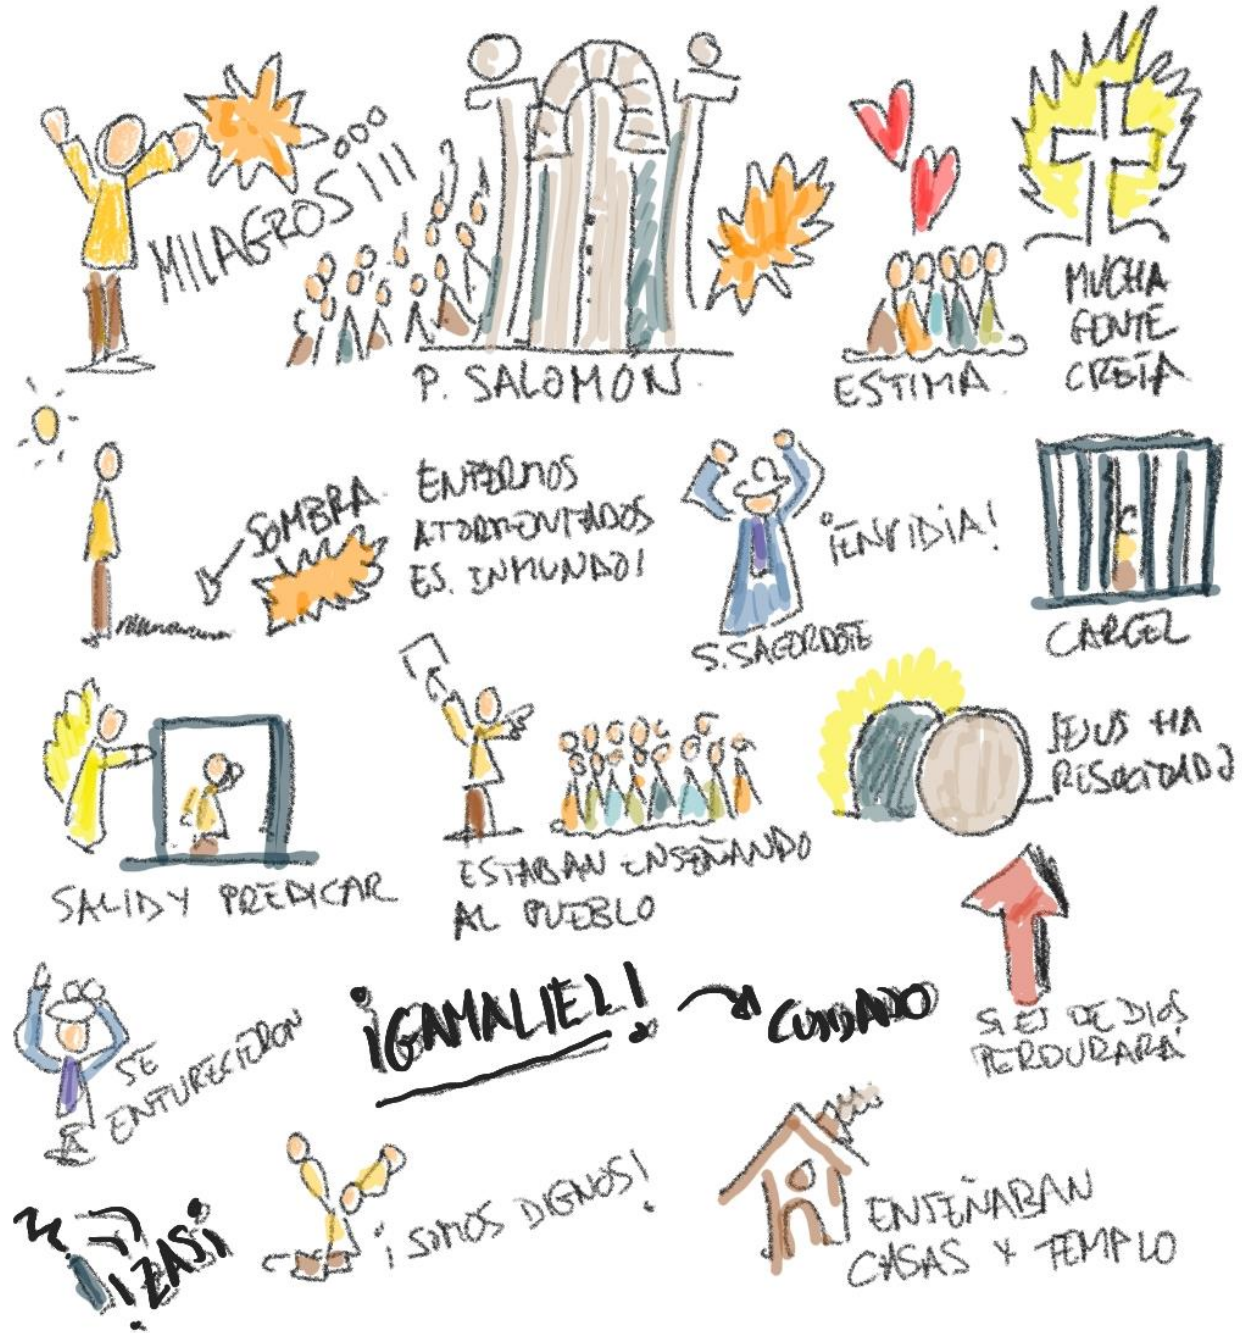 MILAGROS¡¡¡
P. SALOMÓN.
ESTIMA.
MUCHA
GENTE
CREÍA
SOMBRA
ENFERMOS
ATORMENTADOS
ES. INMUNDO!
¡ENVIDIA!
S. SACERDOTE
CARCEL
SALID Y PREDICAR
ESTABAN ENSEÑANDO
AL PUEBLO
JESUS HA
RESUCITADO
SE
ENFURECIERON
¡GAMALIEL!
CUIDADO
SI ES DE DIOS
PERDURARÁ
¡ZAS!
¡SOMOS DIGNOS!
ENSEÑABAN
CASAS Y TEMPLO